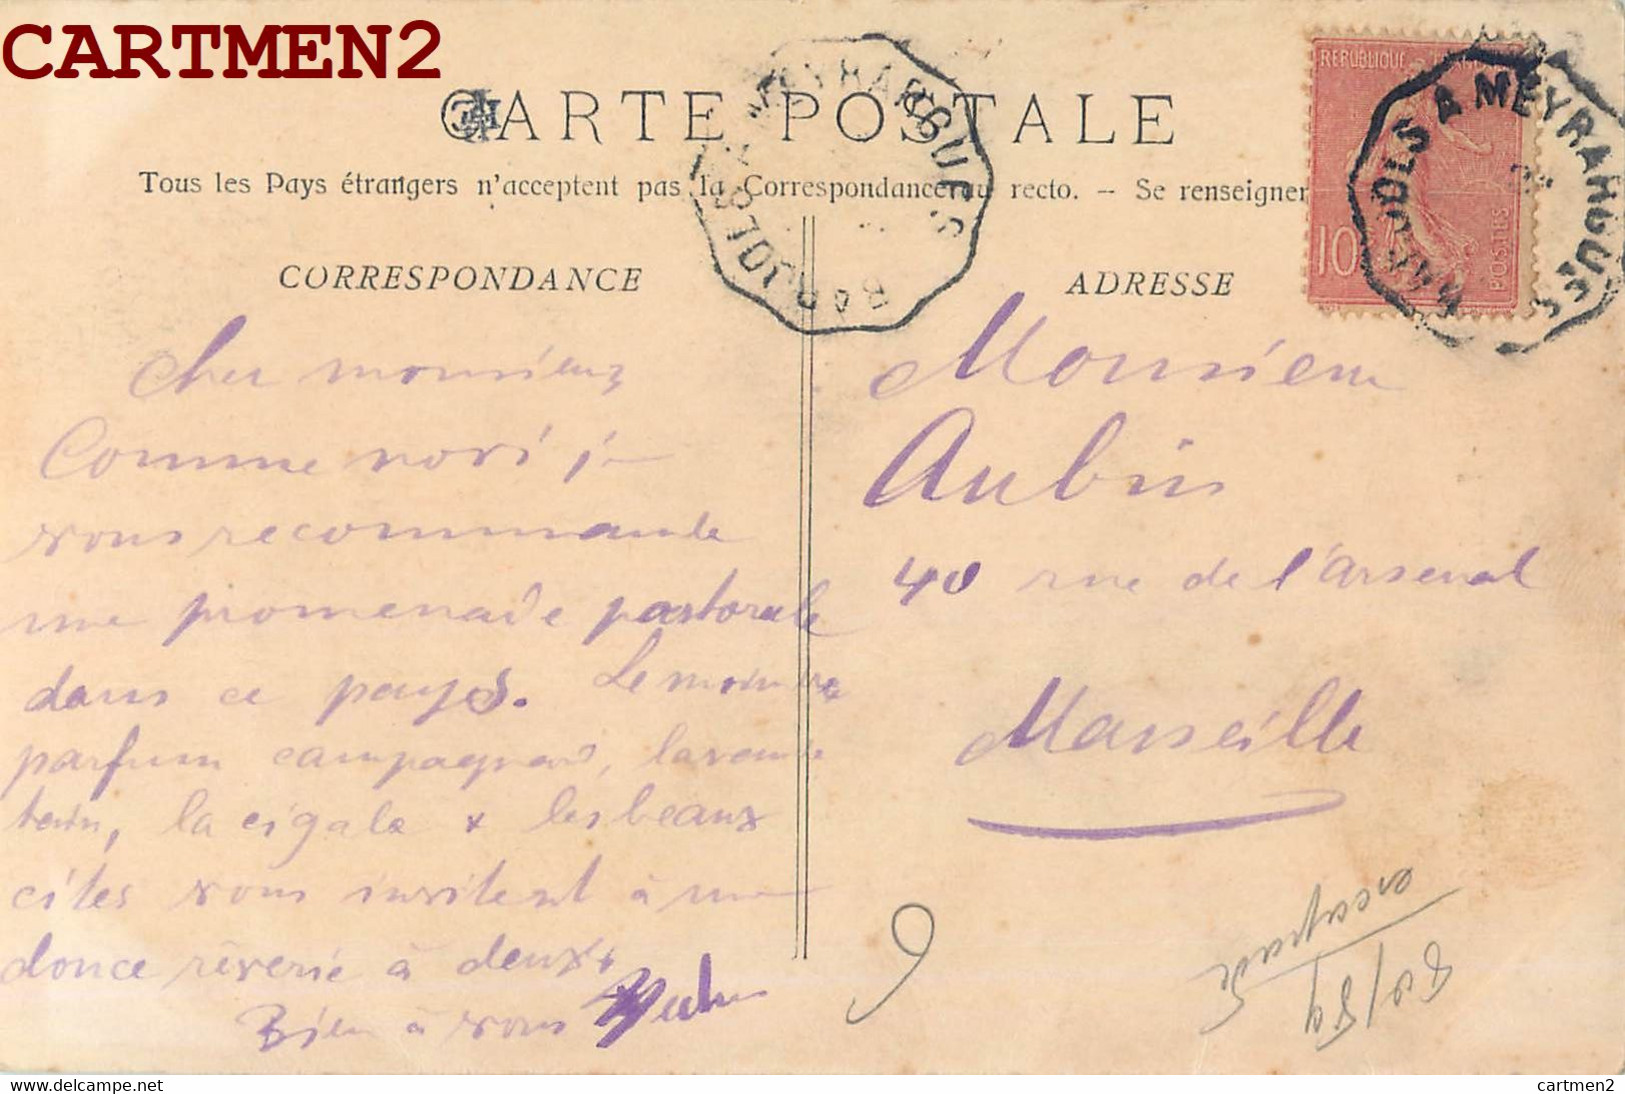 CARTMEN2
CARTE POSTALE
Tous les Pays étrangers n'acceptent pas la Correspondance au recto. — Se renseigner
REPUBLIQUE
10
POSTES
BARJOLS A MEYRARGUES
BARJOLS A MEYRARGUES
CORRESPONDANCE
Cher monsieur
Comme novi je
vous recommande
une promenade pastorale
dans ce pays. Le moindre
parfum campagnard,
la cigale & les beaux
cites vous invitent à une
douce rêverie à deux.
Bien à vous
ADRESSE
Monsieur
Aubin
40 rue de l'Arsenal
Marseille
6
80/84
delcampe.net
cartmen2